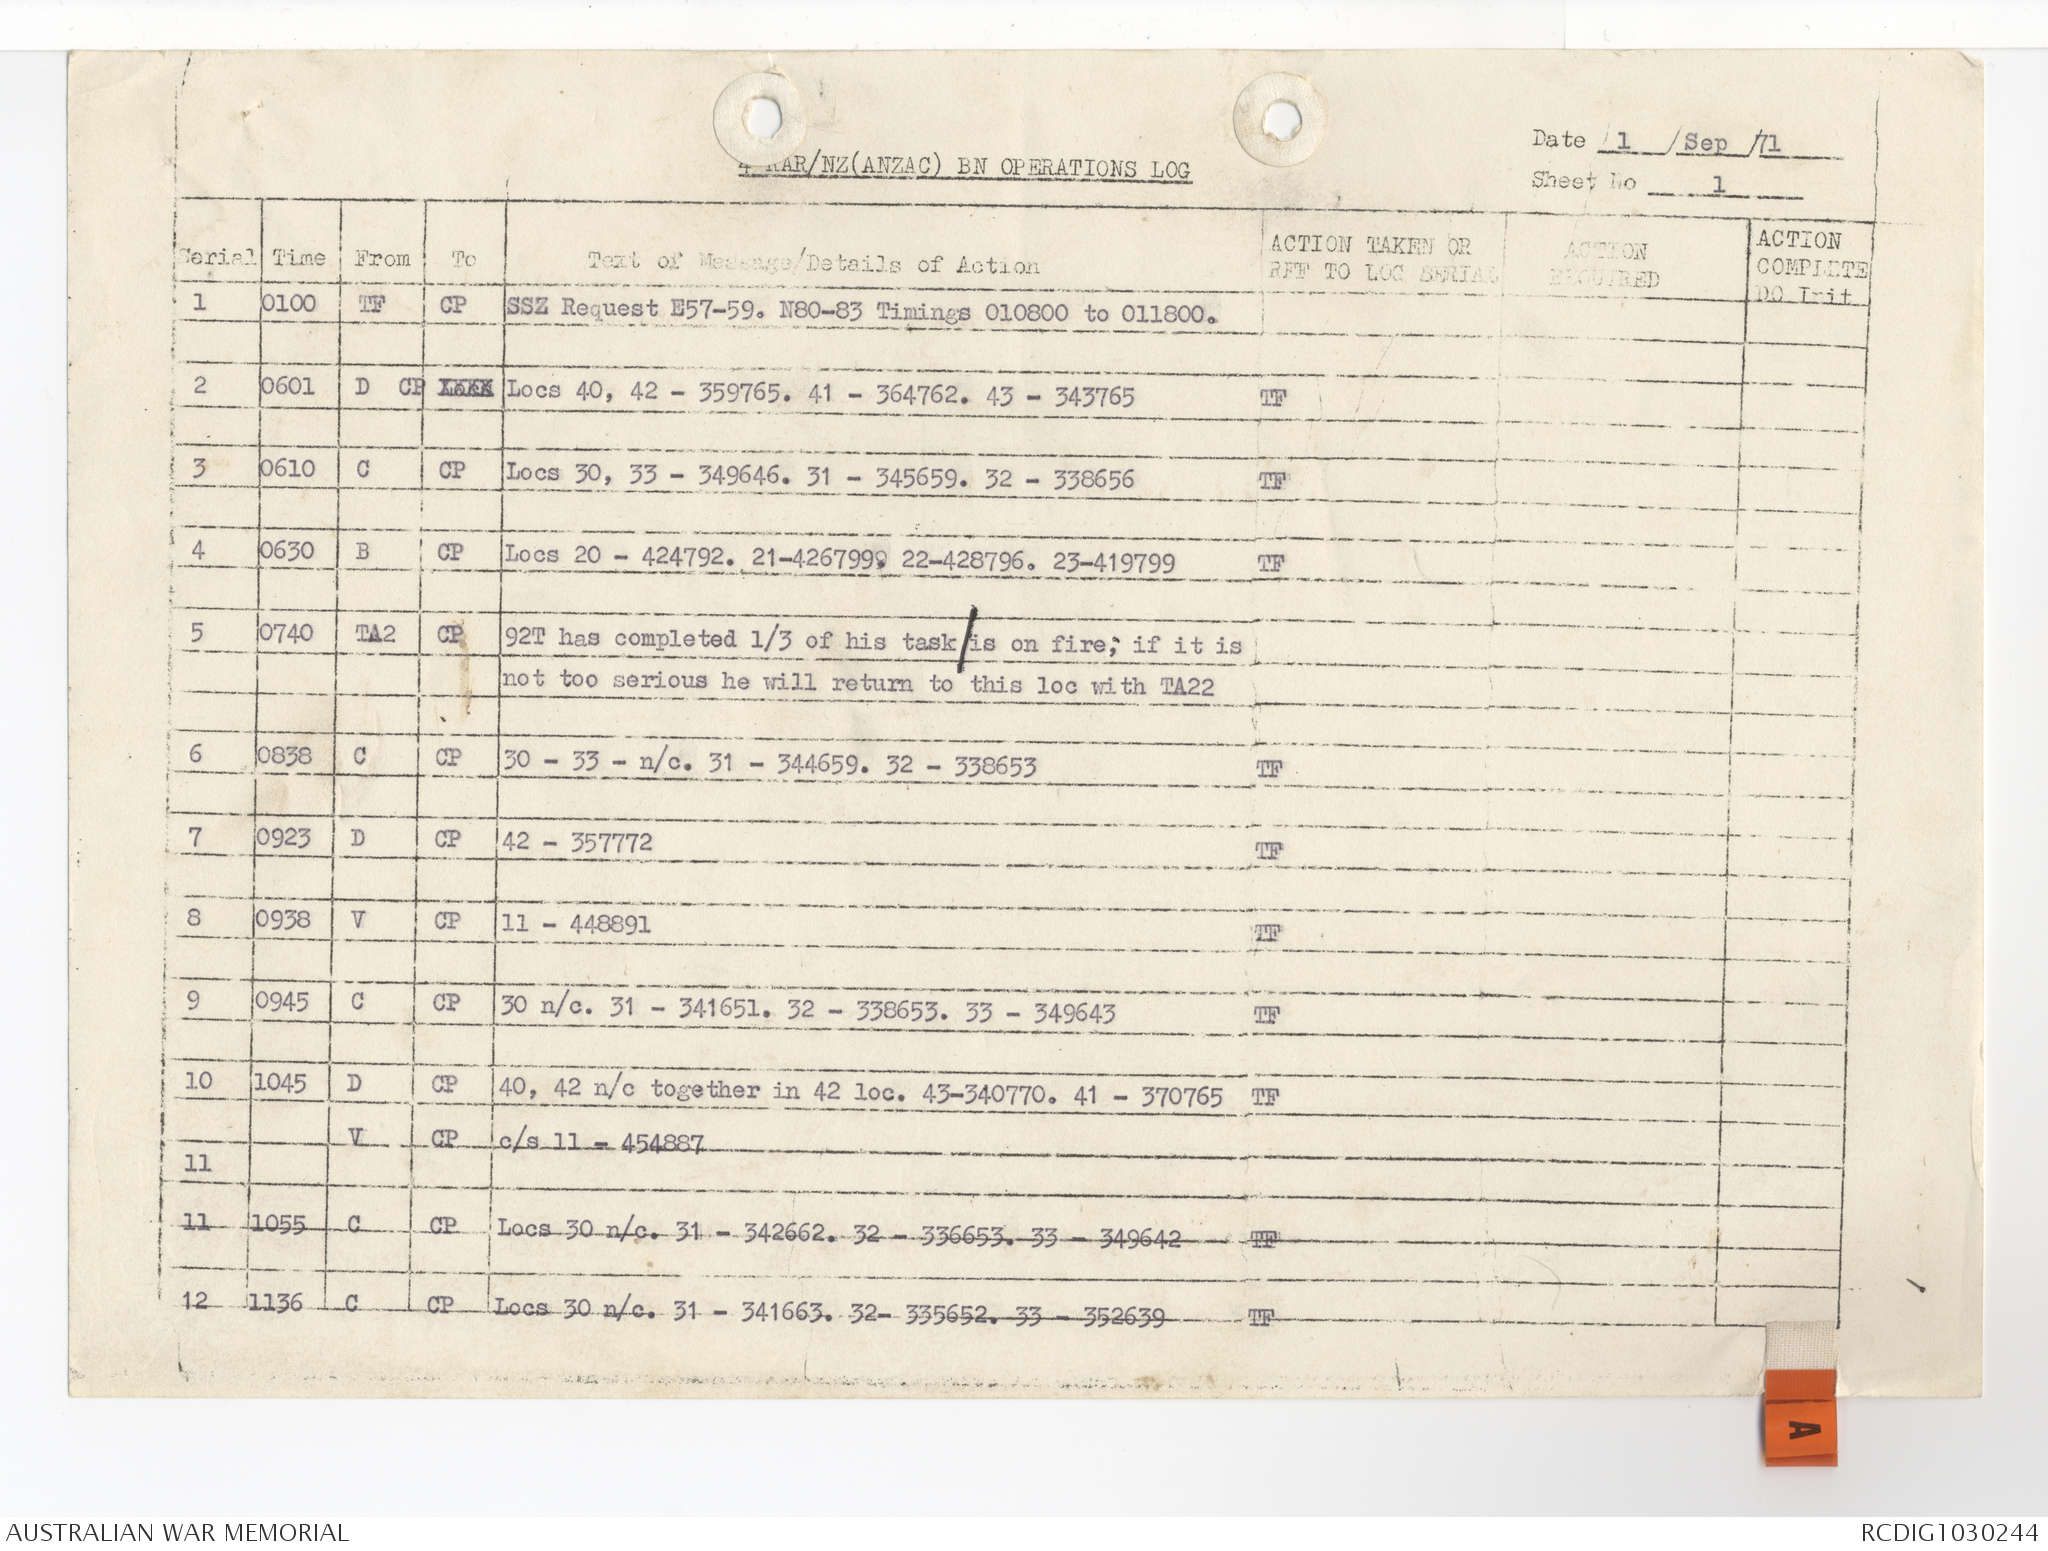 Date 1 / Sep /71
4 RAR/NZ(ANZAC) BN OPERATIONS LOG
Sheet No 1
Serial Time From To Text of Message/Details of Action ACTION TAKEN OR REF TO LOG SERIAL ACTION REQUIRED ACTION COMPLETE DO Init
1 0100 TF CP SSZ Request E57-59. N80-83 Timings 010800 to 011800.
2 0601 D CP Locs 40, 42 - 359765. 41 - 364762. 43 - 343765 TF
3 0610 C CP Locs 30, 33 - 349646. 31 - 345659. 32 - 338656 TF
4 0630 B CP Locs 20 - 424792. 21-426799. 22-428796. 23-419799 TF
5 0740 TA2 CP 92T has completed 1/3 of his task/is on fire; if it is
not too serious he will return to this loc with TA22
6 0838 C CP 30 - 33 - n/c. 31 - 344659. 32 - 338653 TF
7 0923 D CP 42 - 357772 TF
8 0938 V CP 11 - 448891 TF
9 0945 C CP 30 n/c. 31 - 341651. 32 - 338653. 33 - 349643 TF
10 1045 D CP 40, 42 n/c together in 42 loc. 43-340770. 41 - 370765 TF
V CP c/s 11 - 454887
11
11 1055 C CP Locs 30 n/c. 31 - 342662. 32 - 336653. 33 - 349642 TF
12 1136 C CP Locs 30 n/c. 31 - 341663. 32- 335652. 33 - 352639 TF
A
AUSTRALIAN WAR MEMORIAL
RCDIG1030244